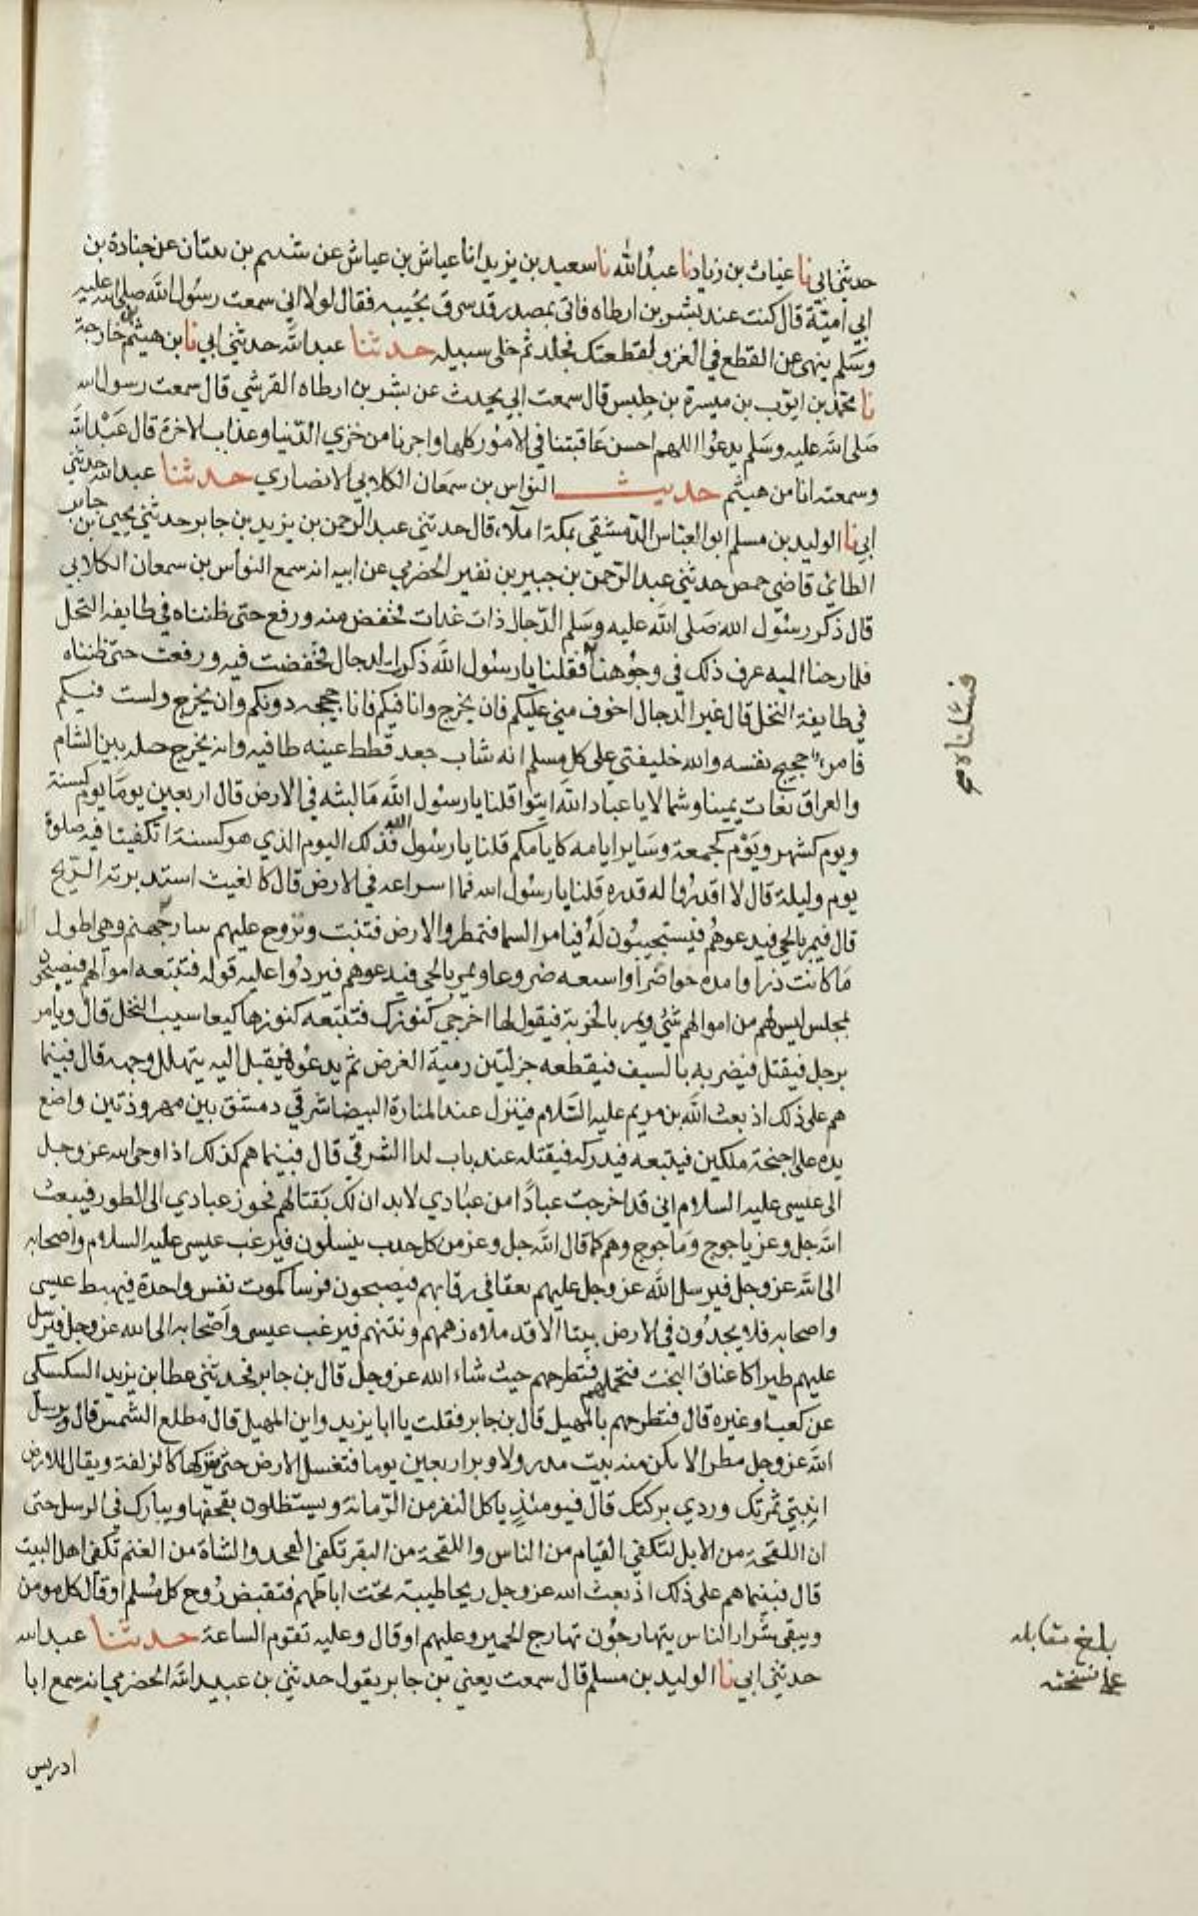 حدثني ابي نا عتاب بن زياد نا عبد الله نا سعيد بن يزيد انا عياش بن عباس عن شييم بن بيتان عن جنادة بن
ابي امية قال كنت عند بشر بن ارطاه فاتى بمصدر قد سرق بختيه فقال لولا اني سمعت رسول الله صلى الله عليه
وسلم ينهى عن القطع في الغزو لقطعتك فجلد ثم خلى سبيله حدثنا عبد الله حدثني ابي نا بن هيثم بن خارجة
نا محمد بن ايوب بن ميسرة بن حلبس قال سمعت ابي يحدث عن بشر بن ارطاه القرشي قال سمعت رسول الله
صلى الله عليه وسلم يدعوا اللهم احسن عاقبتنا في الامور كلها واجرنا من خزي الدنيا وعذاب الاخرة قال عبد الله
وسمعته انا من هيثم حديث النواس بن سمعان الكلابي الانصاري حدثنا عبد الله حدثني
ابي نا الوليد بن مسلم ابو العباس الدمشقي بمكة املاء قال حدثني عبد الرحمن بن يزيد بن جابر حدثني يحيى بن جابر
الطائي قاضي حمص حدثني عبد الرحمن بن جبير بن نفير الحضرمي عن ابيه انه سمع النواس بن سمعان الكلابي
قال ذكر رسول الله صلى الله عليه وسلم الدجال ذات غدات فخفض منه ورفع حتى ظنناه في طايفة النخل
فلما رحنا اليه عرف ذلك في وجوهنا فقلنا يا رسول الله ذكرت الدجال فخفضت فيه ورفعت حتى ظنناه
في طايفة النخل قال غير الدجال اخوف مني عليكم فان يخرج وانا فيكم فانا حجيجه دونكم وان يخرج ولست فيكم
فامرء حجيج نفسه والله خليفتي على كل مسلم انه شاب جعد قطط عينه طافيه وانه يخرج حله بين الشام
والعراق فعاث يمينا وشمالا يا عباد الله اثبتوا قلنا يا رسول الله ما لبثه في الارض قال اربعين يوما يوم كسنة
ويوم كشهر ويوم كجمعة وساير ايامه كايامكم قلنا يا رسول الله فذلك اليوم الذي هو كسنة اتكفينا فيه صلوة
يوم وليلة قال لا اقدروا له قدره قلنا يا رسول الله فما اسراعه في الارض قال كالغيث استدبرته الريح
قال فيمر بالحي فيدعوهم فيستجيبون له فيامر السما فتمطر والارض فتنبت وتروح عليهم سارحهم وهي اطول
ما كانت ذرا وامده خواصرا واسبعه ضروعا ويمر بالحي فيدعوهم فيردوا عليه قوله فتتبعه اموالهم فيصبحون
لمجلس ليس لهم من اموالهم شئ ويمر بالخربة فيقول لها اخرجي كنوزك فتتبعه كنوزها كيعاسيب النخل قال ويامر
برجل فيقتل فيضربه بالسيف فيقطعه جزلتين رمية الغرض ثم يدعوه فيقبل اليه يتهلل وجهه قال فبينما
هم على ذلك اذ بعث الله بن مريم عليه السلام فينزل عند المنارة البيضا شرقي دمشق بين مهروذتين واضع
يده على اجنحة ملكين فيتبعه فيدركه فيقتله عند باب لدا الشرقي قال فبينما هم كذلك اذا اوحى الله عز وجل
الى عيسى عليه السلام اني قد اخرجت عبادا من عبادي لا بدان لك بقتالهم فحوز عبادي الى الطور فيبعث
الله جل وعز ياجوج وماجوج وهم كما قال الله جل وعز من كل حدب ينسلون فيرغب عيسى عليه السلام واصحابه
الى الله عز وجل فيرسل الله عز وجل عليهم نغفا في رقابهم فيصبحون فرسا كموت نفس واحدة فيهبط عيسى
واصحابه فلا يجدون في الارض بيتا الا قد ملاه زهمهم ونتنهم فيرغب عيسى واصحابه الى الله عز وجل فيرسل
عليهم طيرا كاعناق البخت فتحملهم فتطرحهم حيث شاء الله عز وجل قال بن جابر فحدثني عطا بن يزيد السكسكي
عن كعب او غيره قال فتطرحهم بالمهيل قال بن جابر فقلت يا ابا يزيد واين المهيل قال مطلع الشمس قال ويرسل
الله عز وجل مطرا لا يكن منه بيت مدر ولا وبر اربعين يوما فتغسل الارض حتى يتركها كالزلفة ويقال للارض
انبتي ثمرتك وردي بركتك قال فيومئذ ياكل النفر من الرمانة ويستظلون بقحفها ويبارك في الرسل حتى
ان اللقحة من الابل لتكفي الفيام من الناس واللقحة من البقر تكفي الفخد والشاة من الغنم تكفي اهل البيت
قال فبينما هم على ذلك اذ بعث الله عز وجل ريحا طيبة تحت اباطهم فتقبض روح كل مسلم او قال كل مومن
ويبقى شرار الناس يتهارجون تهارج الحمير وعليهم او قال وعليه تقوم الساعة حدثنا عبد الله
حدثني ابي نا الوليد بن مسلم قال سمعت يعني بن جابر يقول حدثني بن عبيد الله الحضرمي انه سمع ابا
ادريس
فسالناه صح
بلغ مقابله
على نسخته